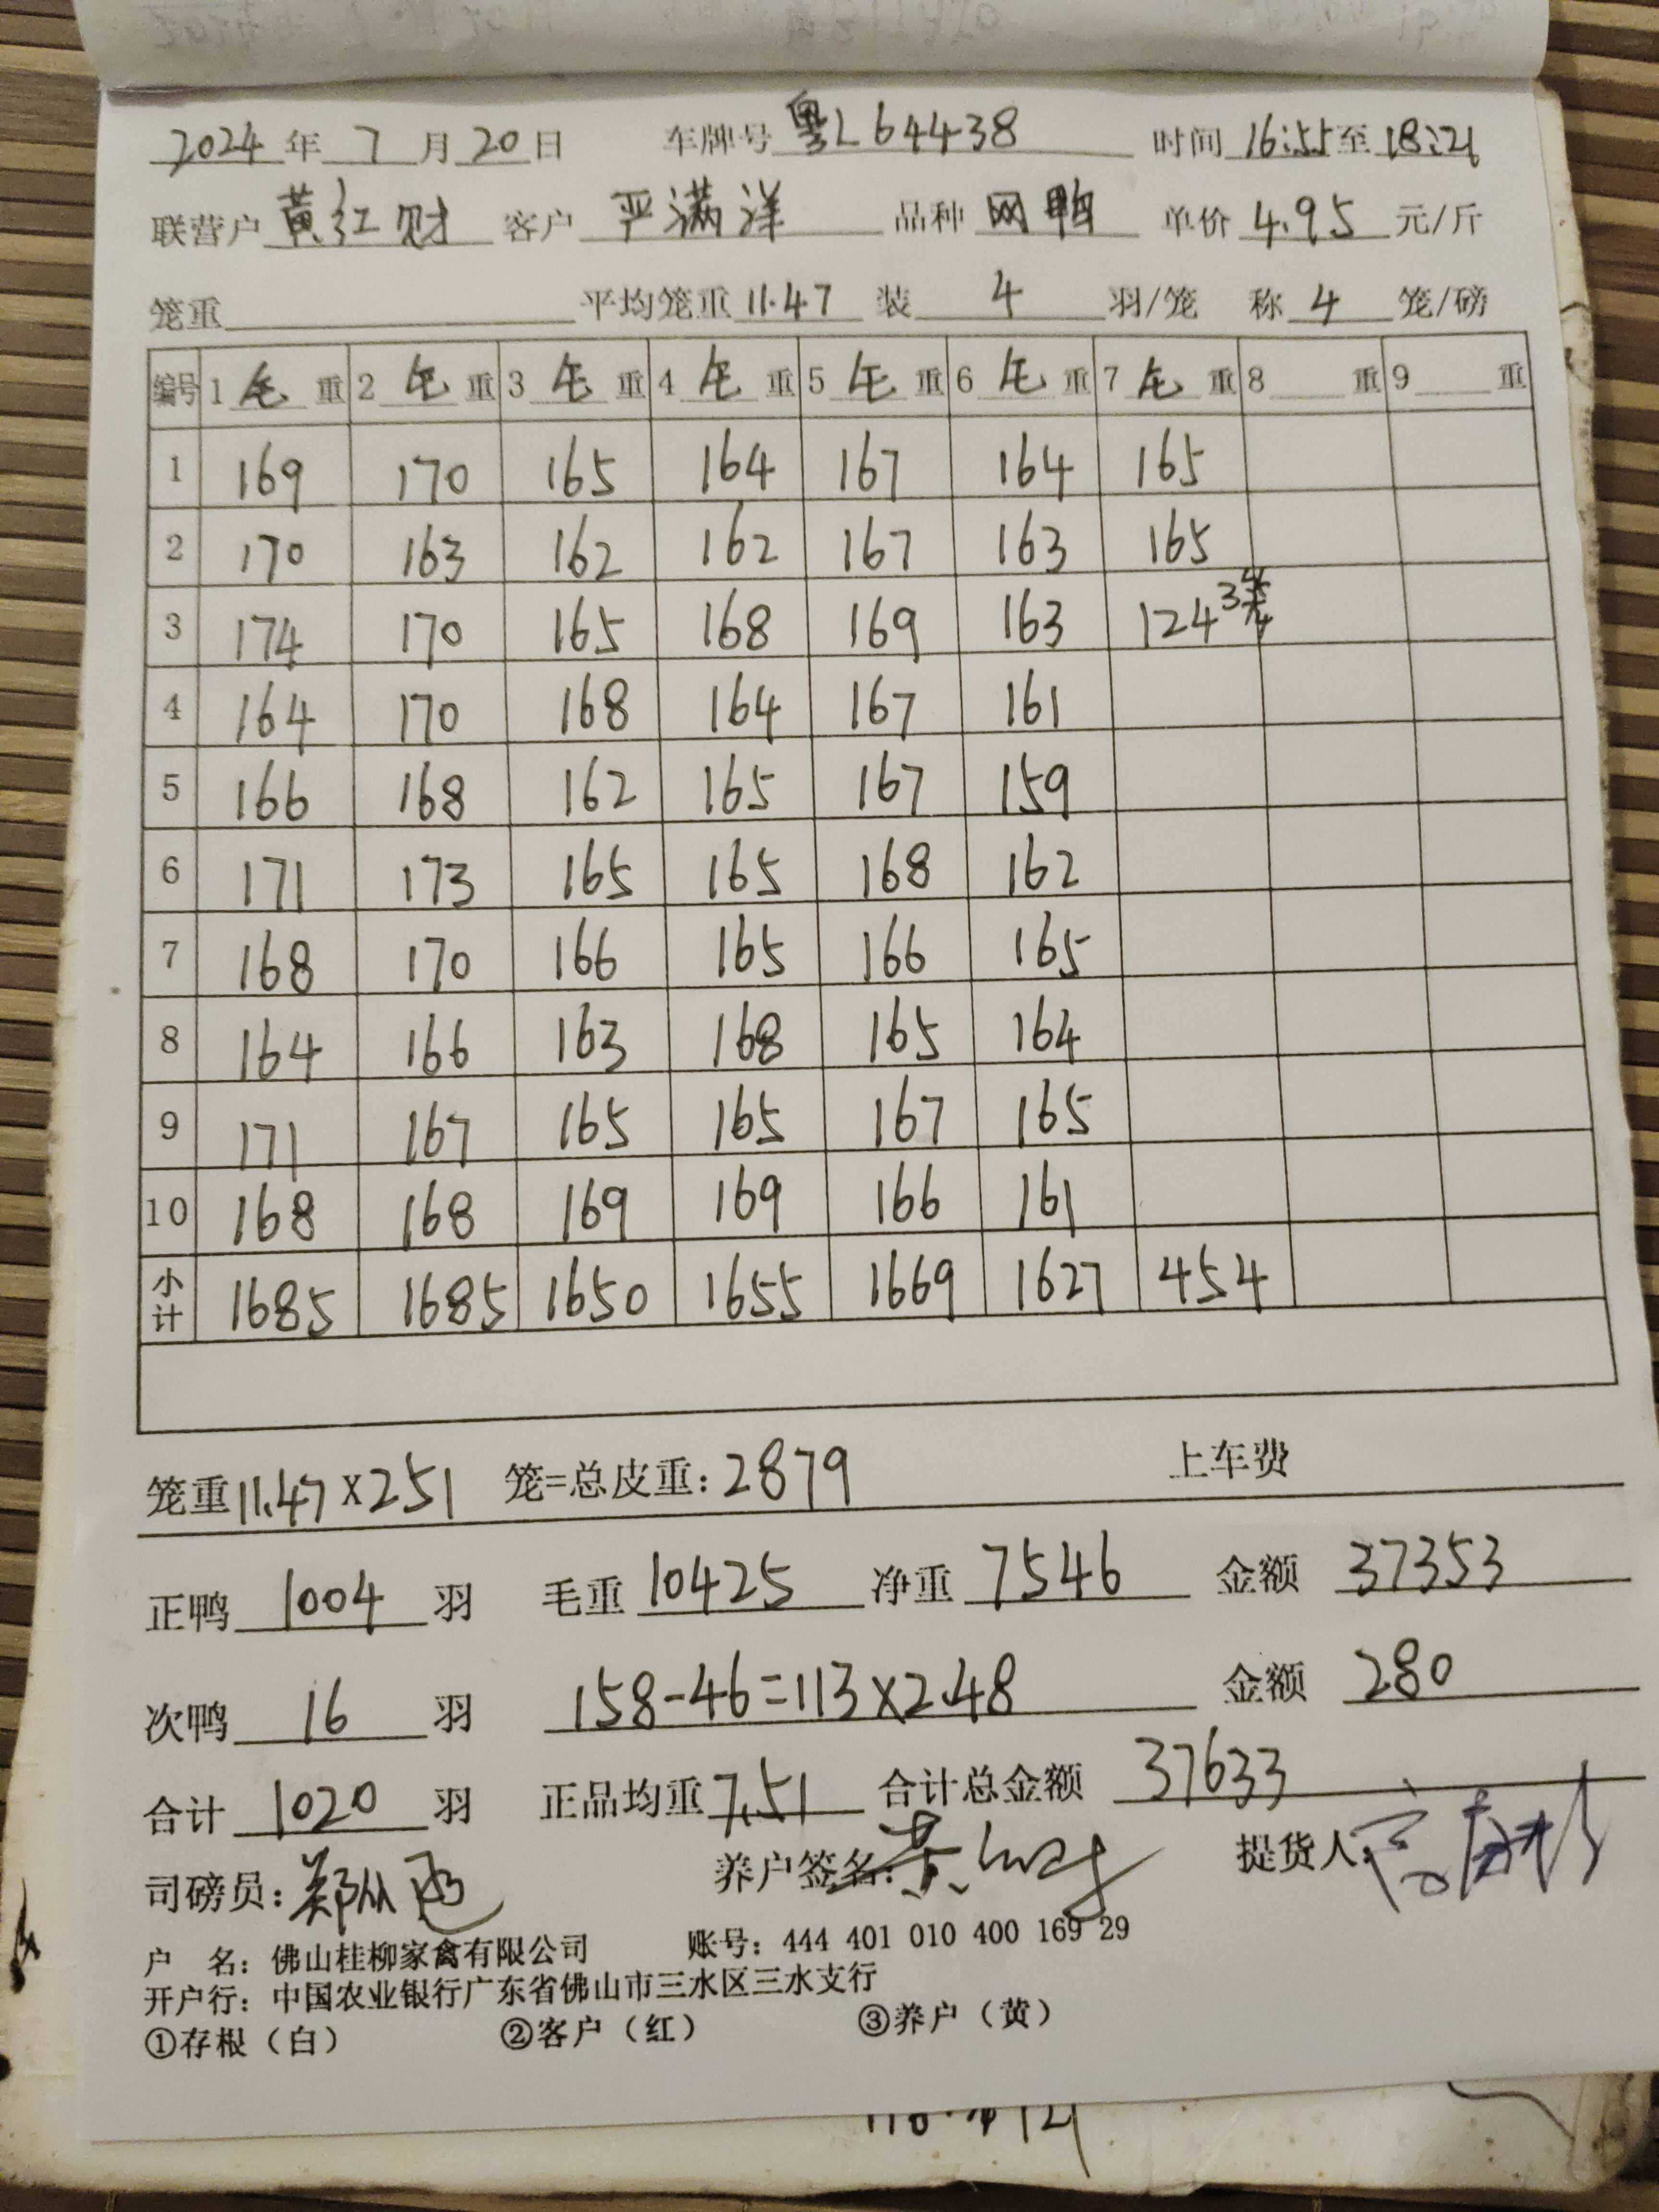 2024年7月20日 车牌号 粤L64438 时间 16:55至18:21
联营户 黄红财 客户 严满洋 品种 网鸭 单价 4.95 元/斤
笼重 平均笼重 11.47 装 4 羽/笼 称 4 笼/磅
编号 1 毛 重 2 毛 重 3 毛 重 4 毛 重 5 毛 重 6 毛 重 7 毛 重 8 重 9 重
1 169 170 165 164 167 164 165
2 170 163 162 162 167 163 165
3 174 170 165 168 169 163 124 3笼
4 164 170 168 164 167 161
5 166 168 162 165 167 159
6 171 173 165 165 168 162
7 168 170 166 165 166 165
8 164 166 163 168 165 164
9 171 167 165 165 167 165
10 168 168 169 169 166 161
小计 1685 1685 1650 1655 1669 1627 454
笼重 11.47×251 笼=总皮重: 2879 上车费
正鸭 1004 羽 毛重 10425 净重 7546 金额 37353
次鸭 16 羽 158-46=113×2.48 金额 280
合计 1020 羽 正品均重 7.51 合计总金额 37633
司磅员: 养户签名: 提货人:
户 名: 佛山桂柳家禽有限公司 账号: 444 401 010 400 169 29
开户行: 中国农业银行广东省佛山市三水区三水支行
①存根(白) ②客户(红) ③养户(黄)